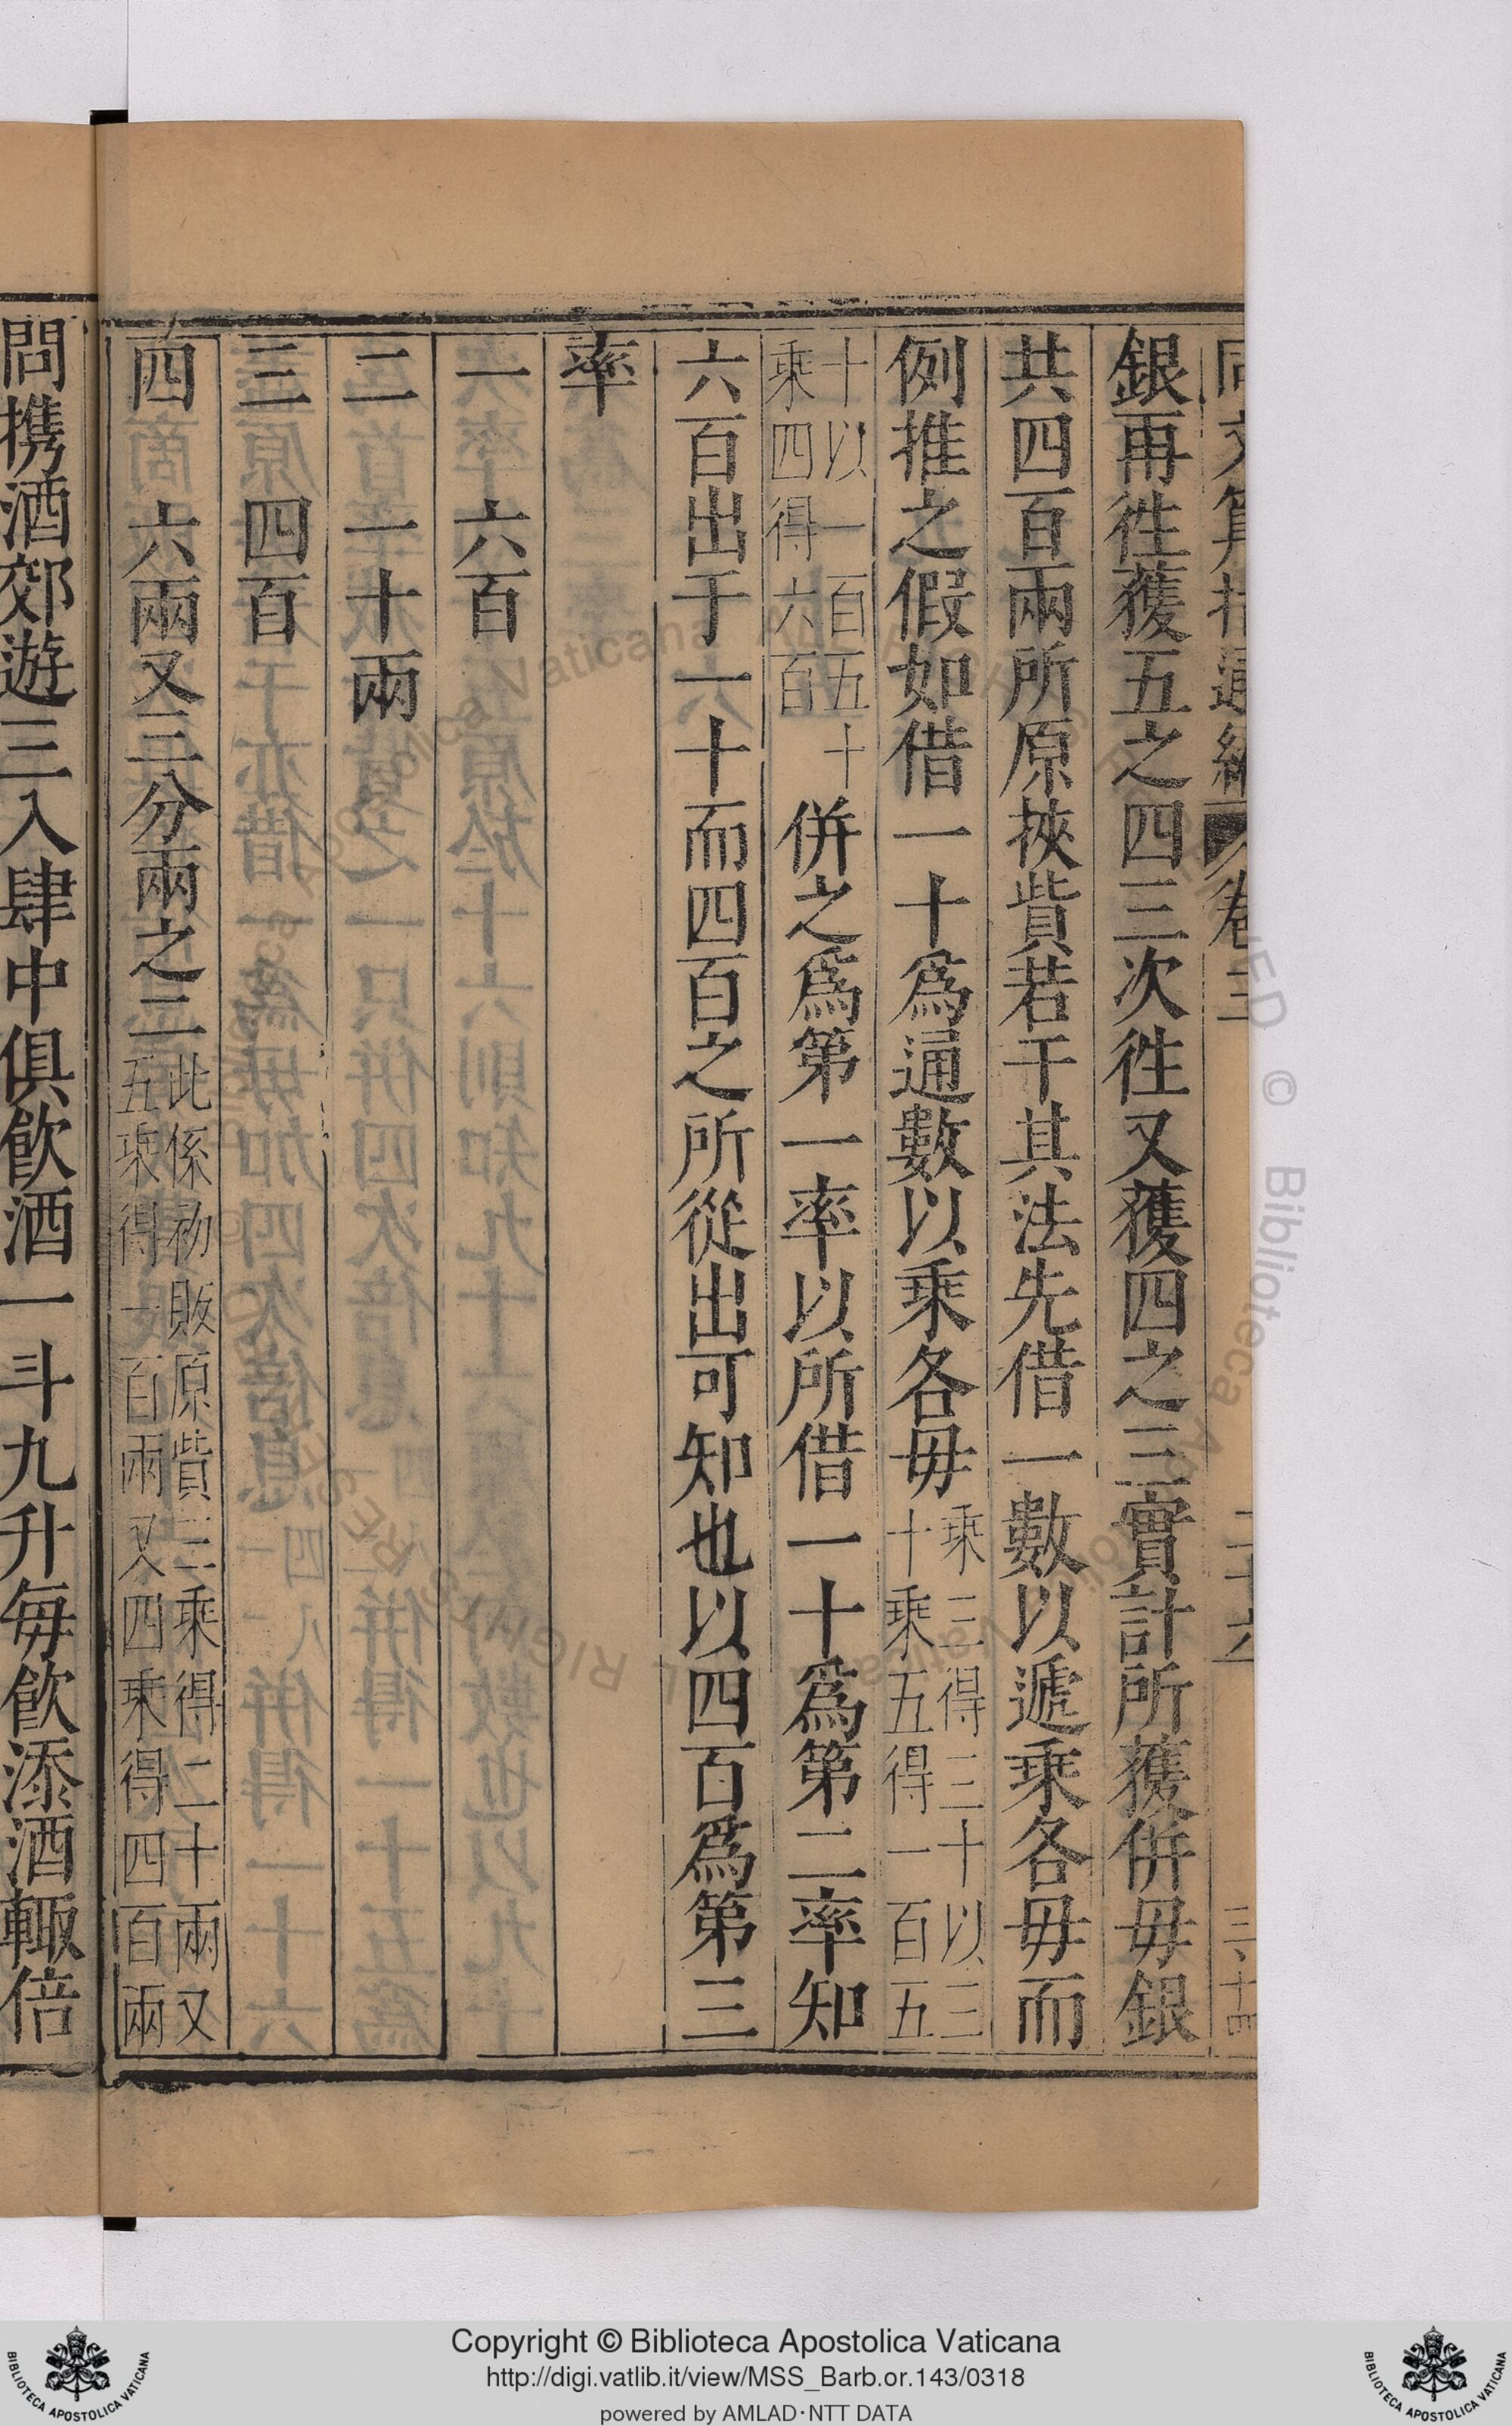 同文算指通編 卷三 二十六 三、十四
銀再徃獲五之四三次徃又獲四之三實計所獲併毋銀
共四百兩所原挾貲若干其法先借一數以遞乘各毋而
例推之假如借一十爲通數以乘各毋乘三得三十以三十乘五得一百五
十以一百五十乘四得六百併之爲第一率以所借一十爲第二率知
六百出于一十而四百之所從出可知也以四百爲第三
率
一 六百
二 一十兩
三 四百
四 六兩又三分兩之二此係初販原貲三乘得二十兩又五乘得一百兩又四乘得四百兩
問携酒郊遊三入肆中俱飲酒一斗九升毎飲添酒輙倍
Copyright © Biblioteca Apostolica Vaticana
http://digi.vatlib.it/view/MSS_Barb.or.143/0318
powered by AMLAD·NTT DATA
BIBLIOTECA APOSTOLICA VATICANA
BIBLIOTECA APOSTOLICA VATICANA